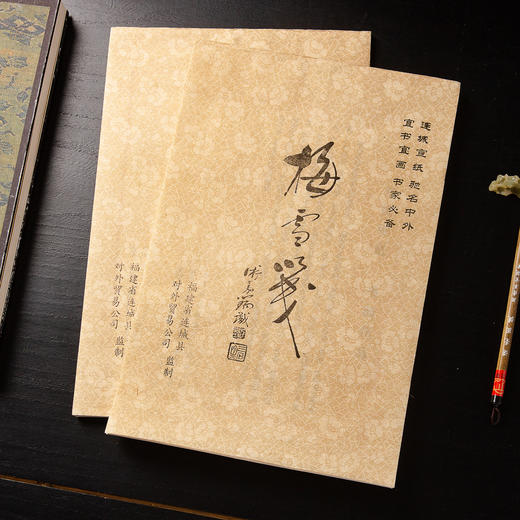 连城宣纸 驰名中外
宜书宜画 书家必备
梅雪笺
福建省连城县
对外贸易公司 监制
福建省连城县
对外贸易公司 监制